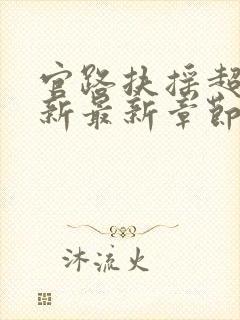 官路扶摇超
新最新章节
沐流火